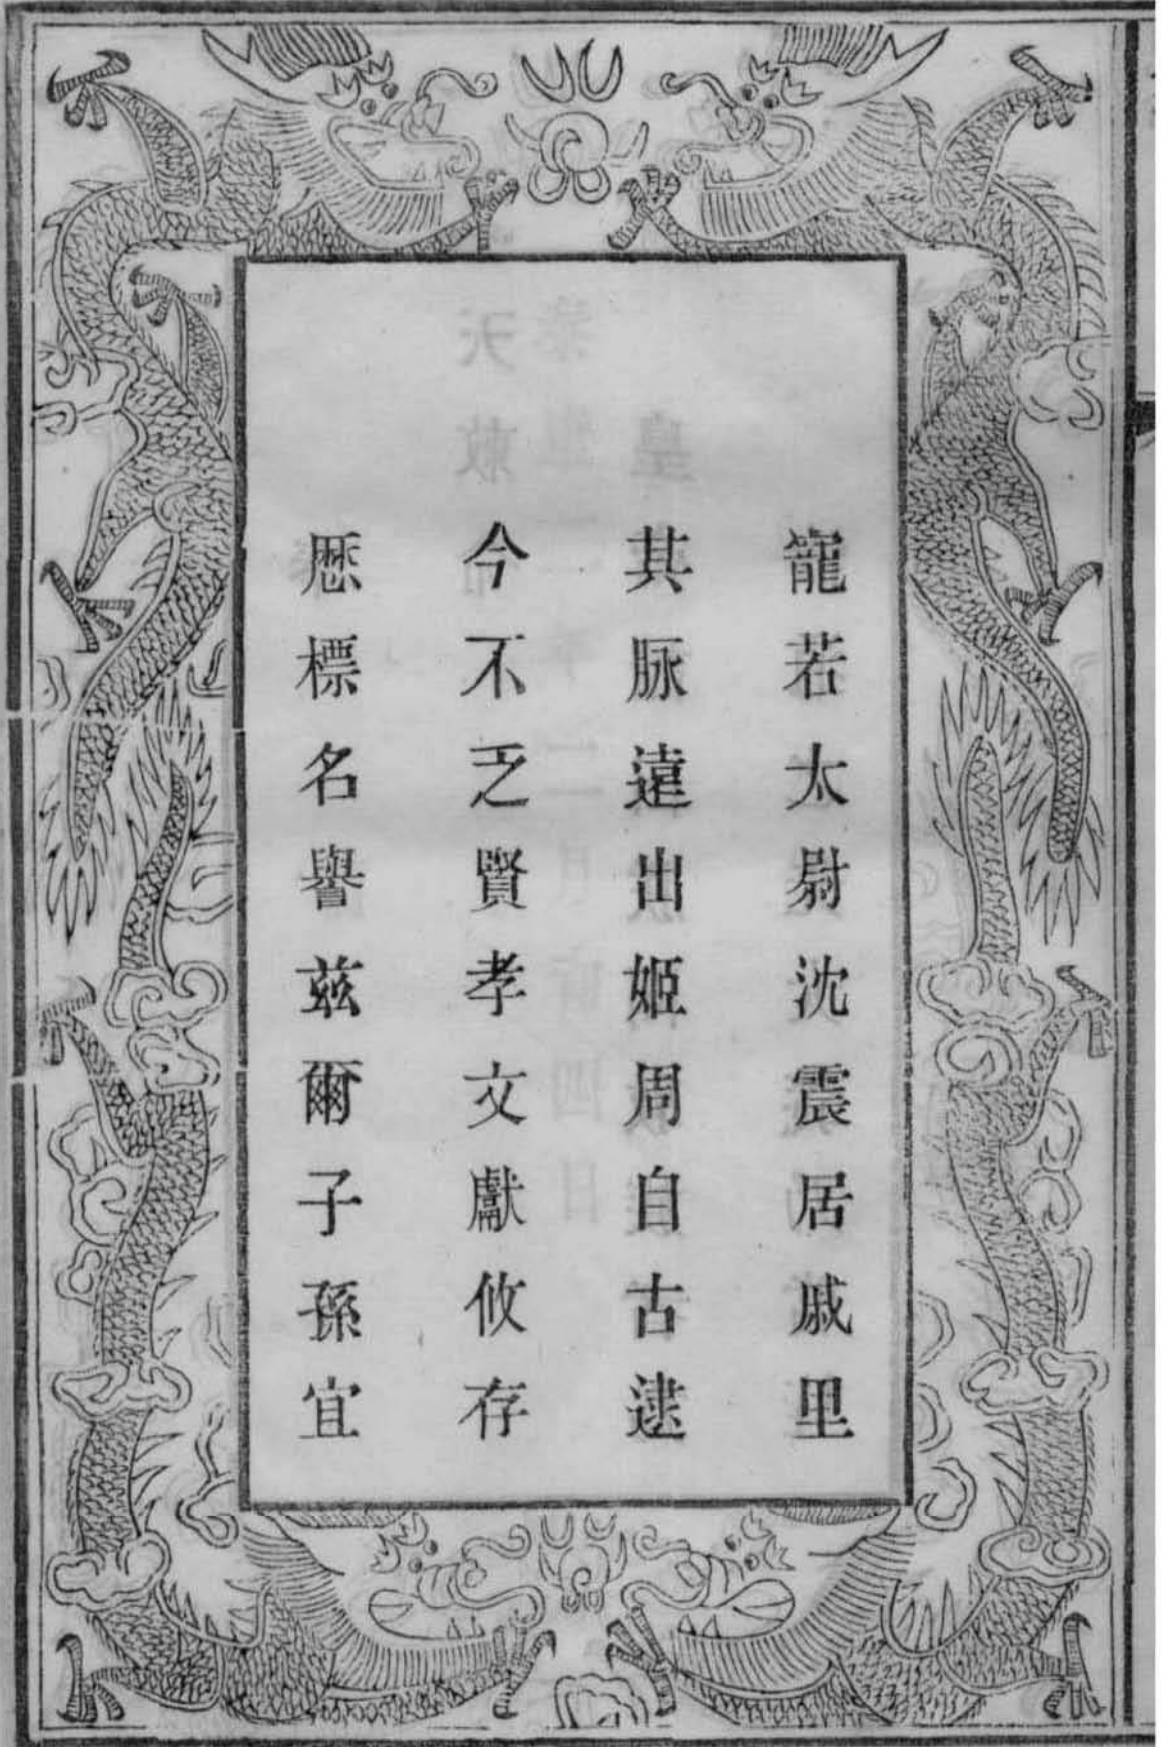 寵若太尉沈震居戚里
其脉遠出姬周自古逮
今不乏賢孝文獻攸存
愿標名譽茲爾子孫宜